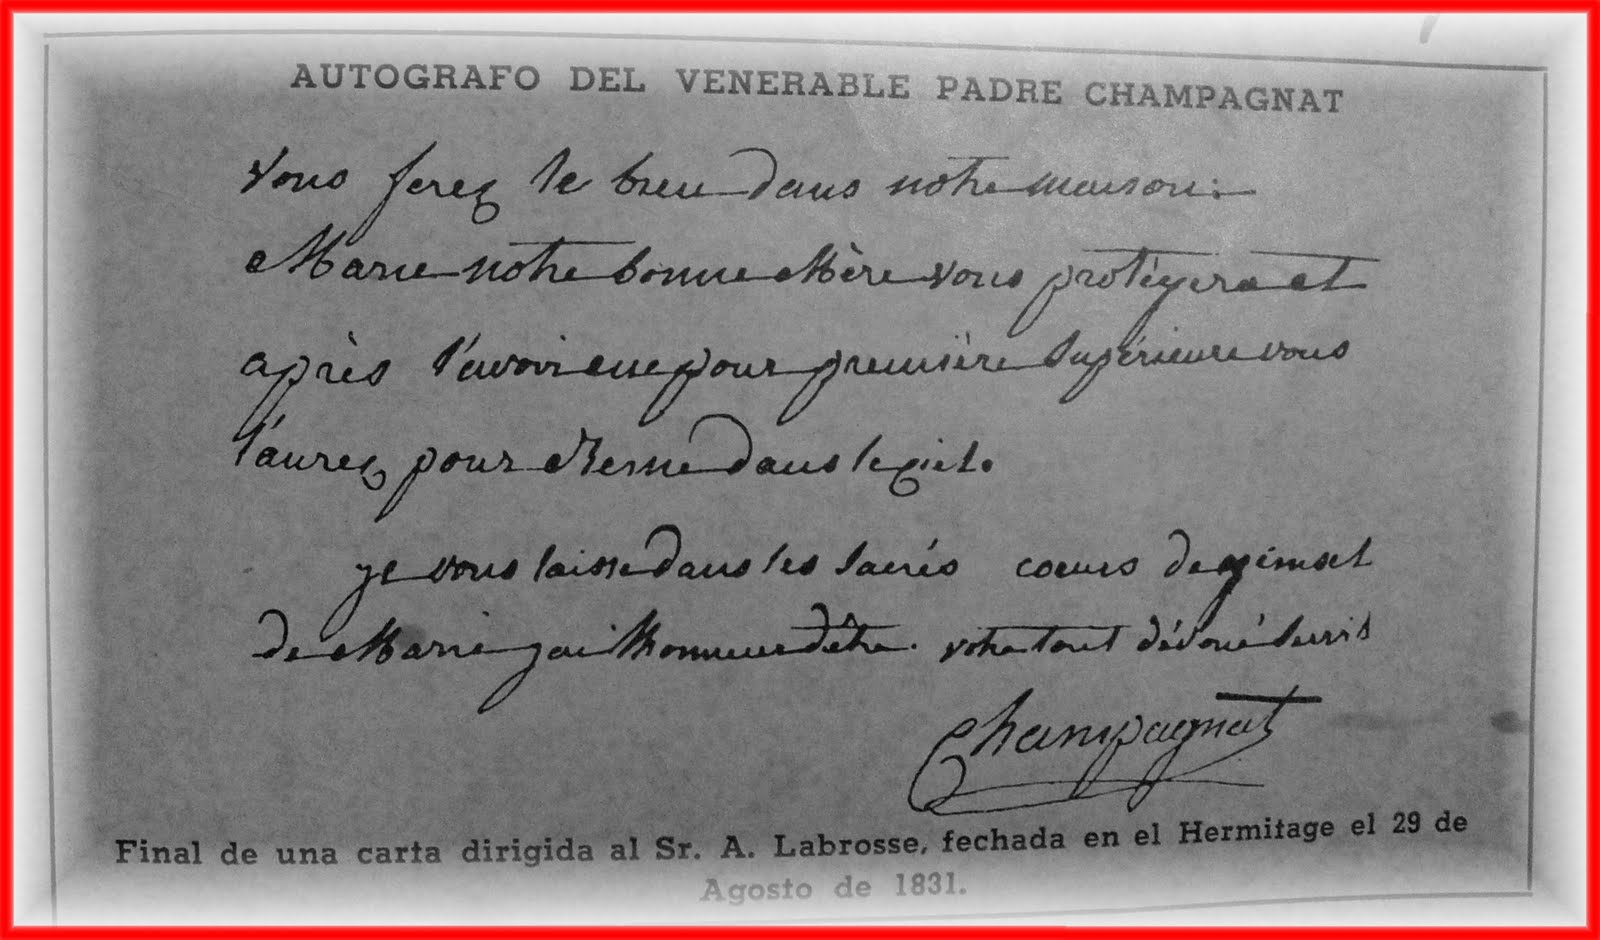 AUTOGRAFO DEL VENERABLE PADRE CHAMPAGNAT
Vous ferez le bien dans notre maison:
Marie notre bonne Mère vous protégera et
après l'avoir eue pour première supérieure vous
l'aurez pour Reine dans le ciel.
je vous laisse dans les sacrés coeurs de Jésus et
de Marie jai lhonneur d'être. votre tout dévoué
Champagnat
Final de una carta dirigida al Sr. A. Labrosse, fechada en el Hermitage el 29 de
Agosto de 1831.